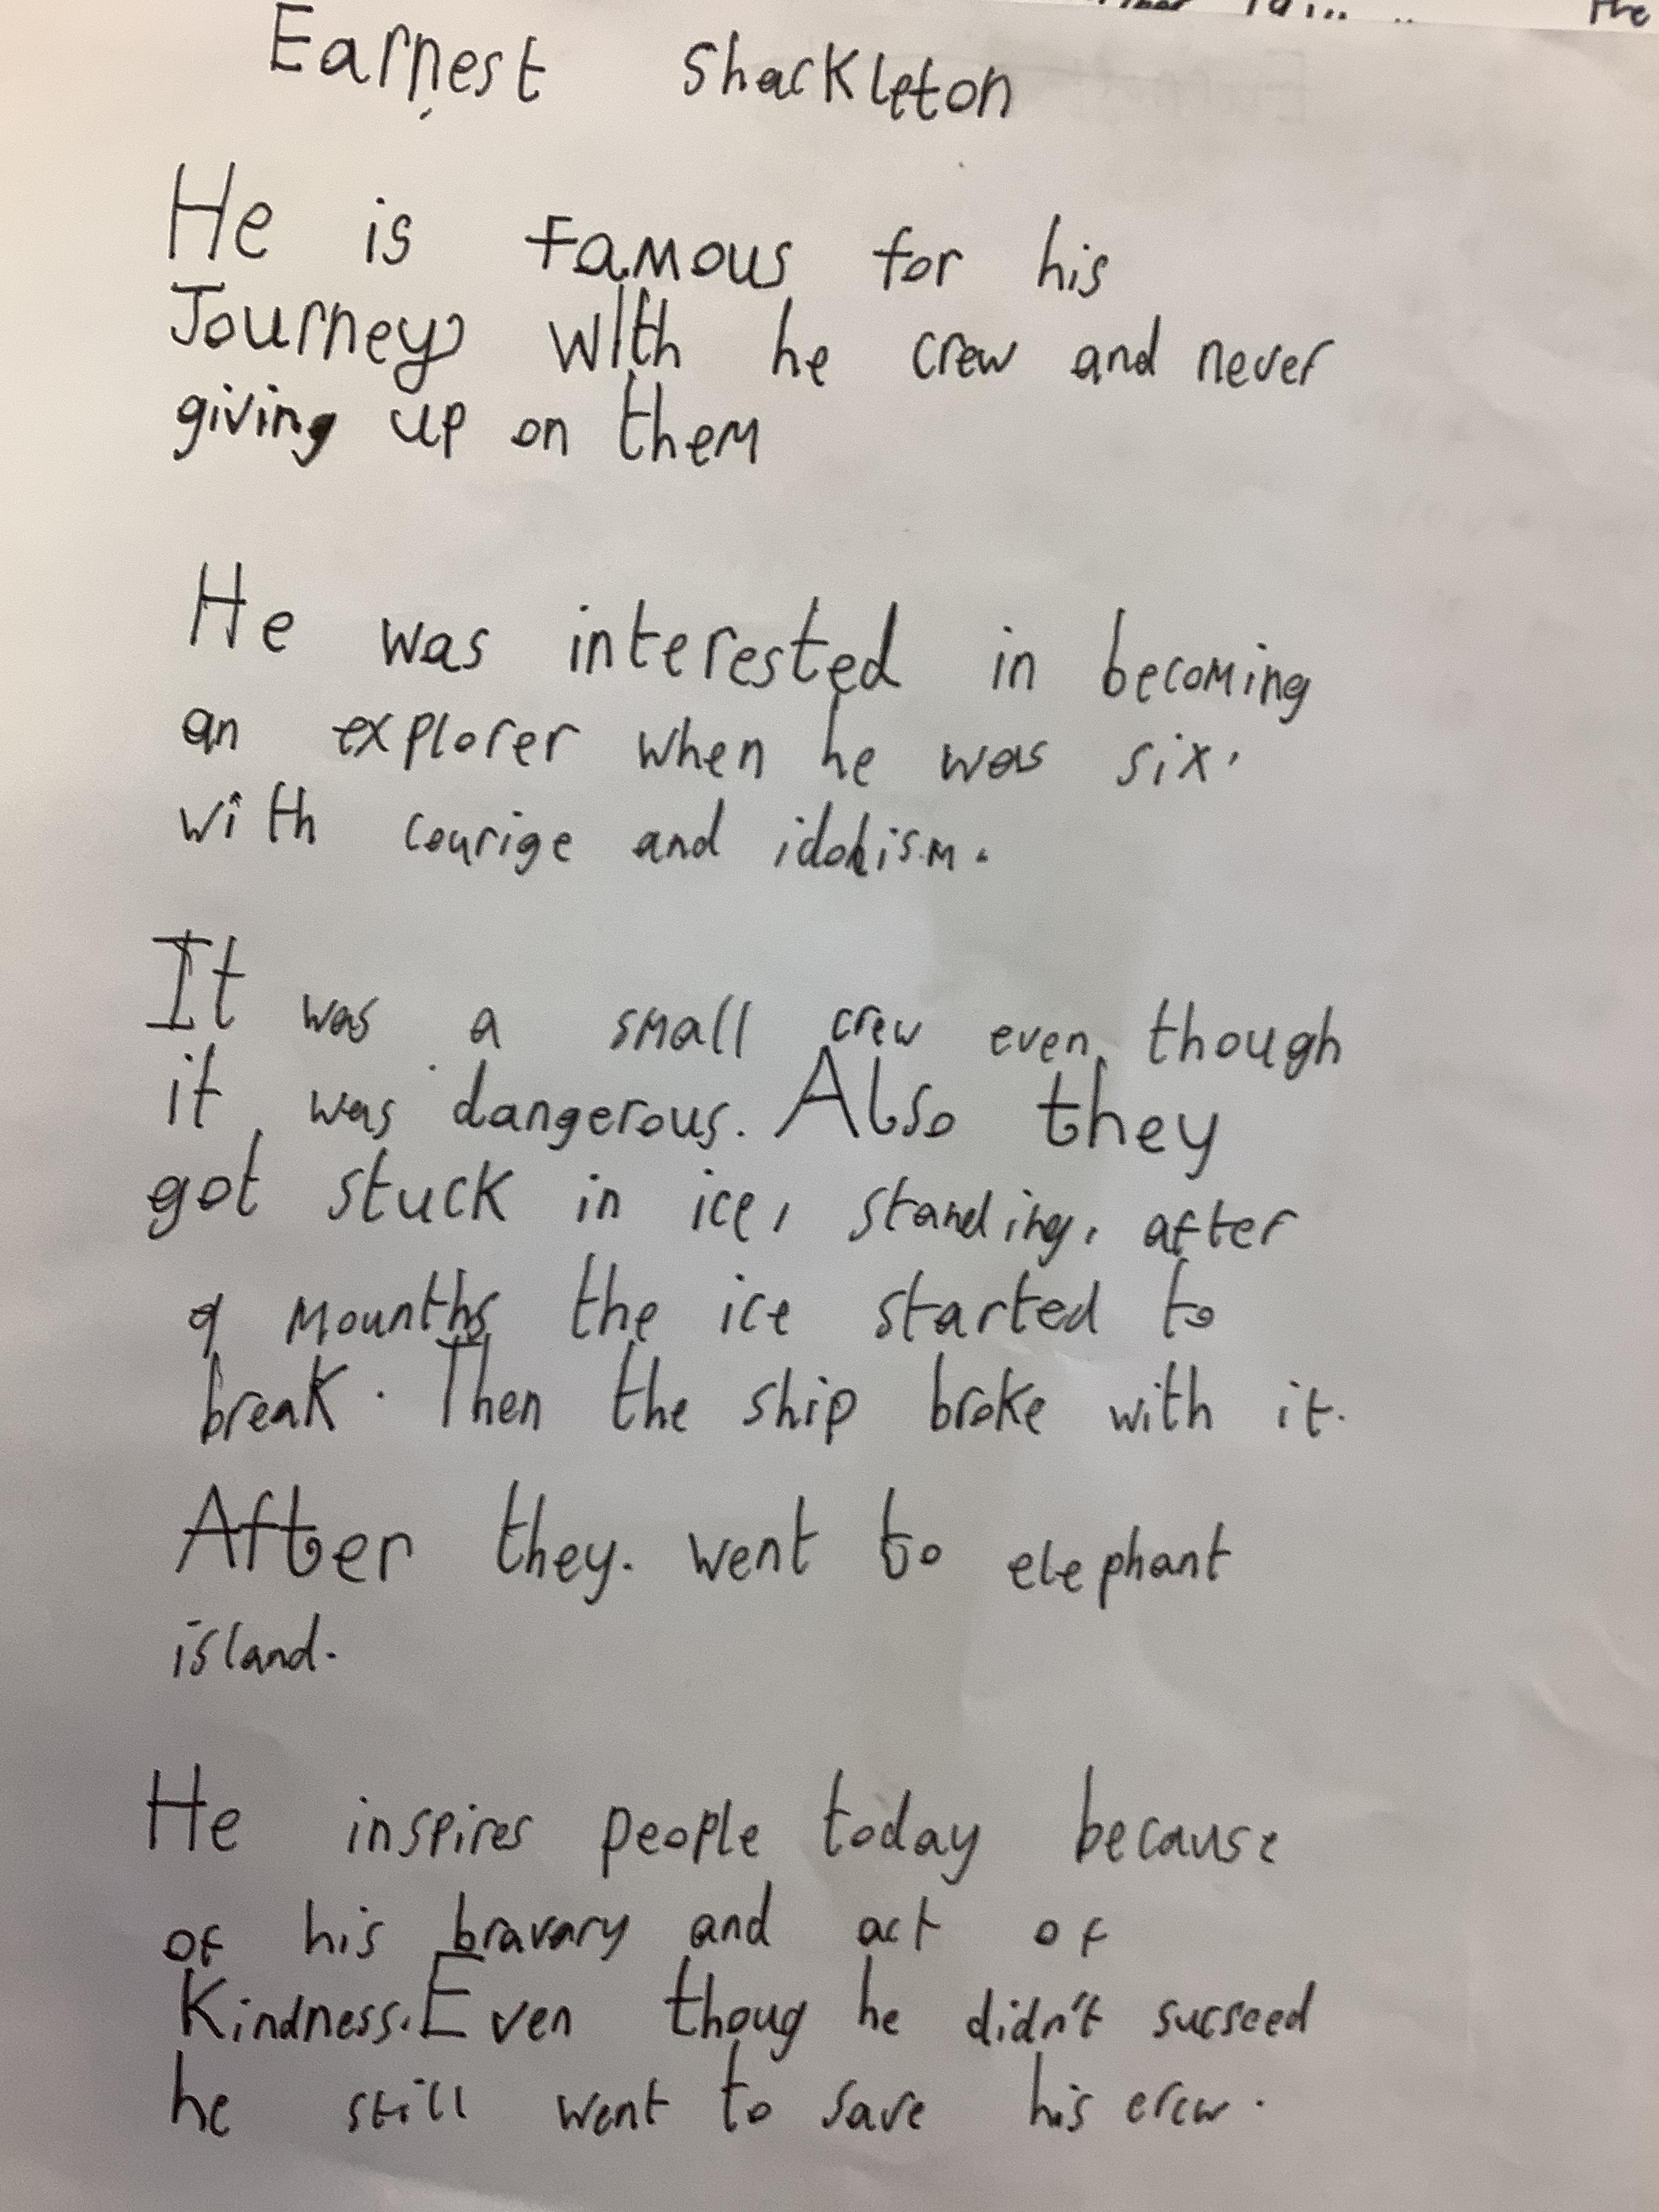 the
Earnest Shackleton
He is famous for his
Journey with he crew and never
giving up on them
He was interested in becoming
an explorer when he was six.
with courige and
It was a small crew even though
it was dangerous. Also they
got stuck in ice, standing, after
9 mounths the ice started to
break. Then the ship broke with it.
After they. went to elephant
island.
He inspires people today because
of his bravary and act of
Kindness. Even thoug he didn't sucseed
he still went to save his crew.